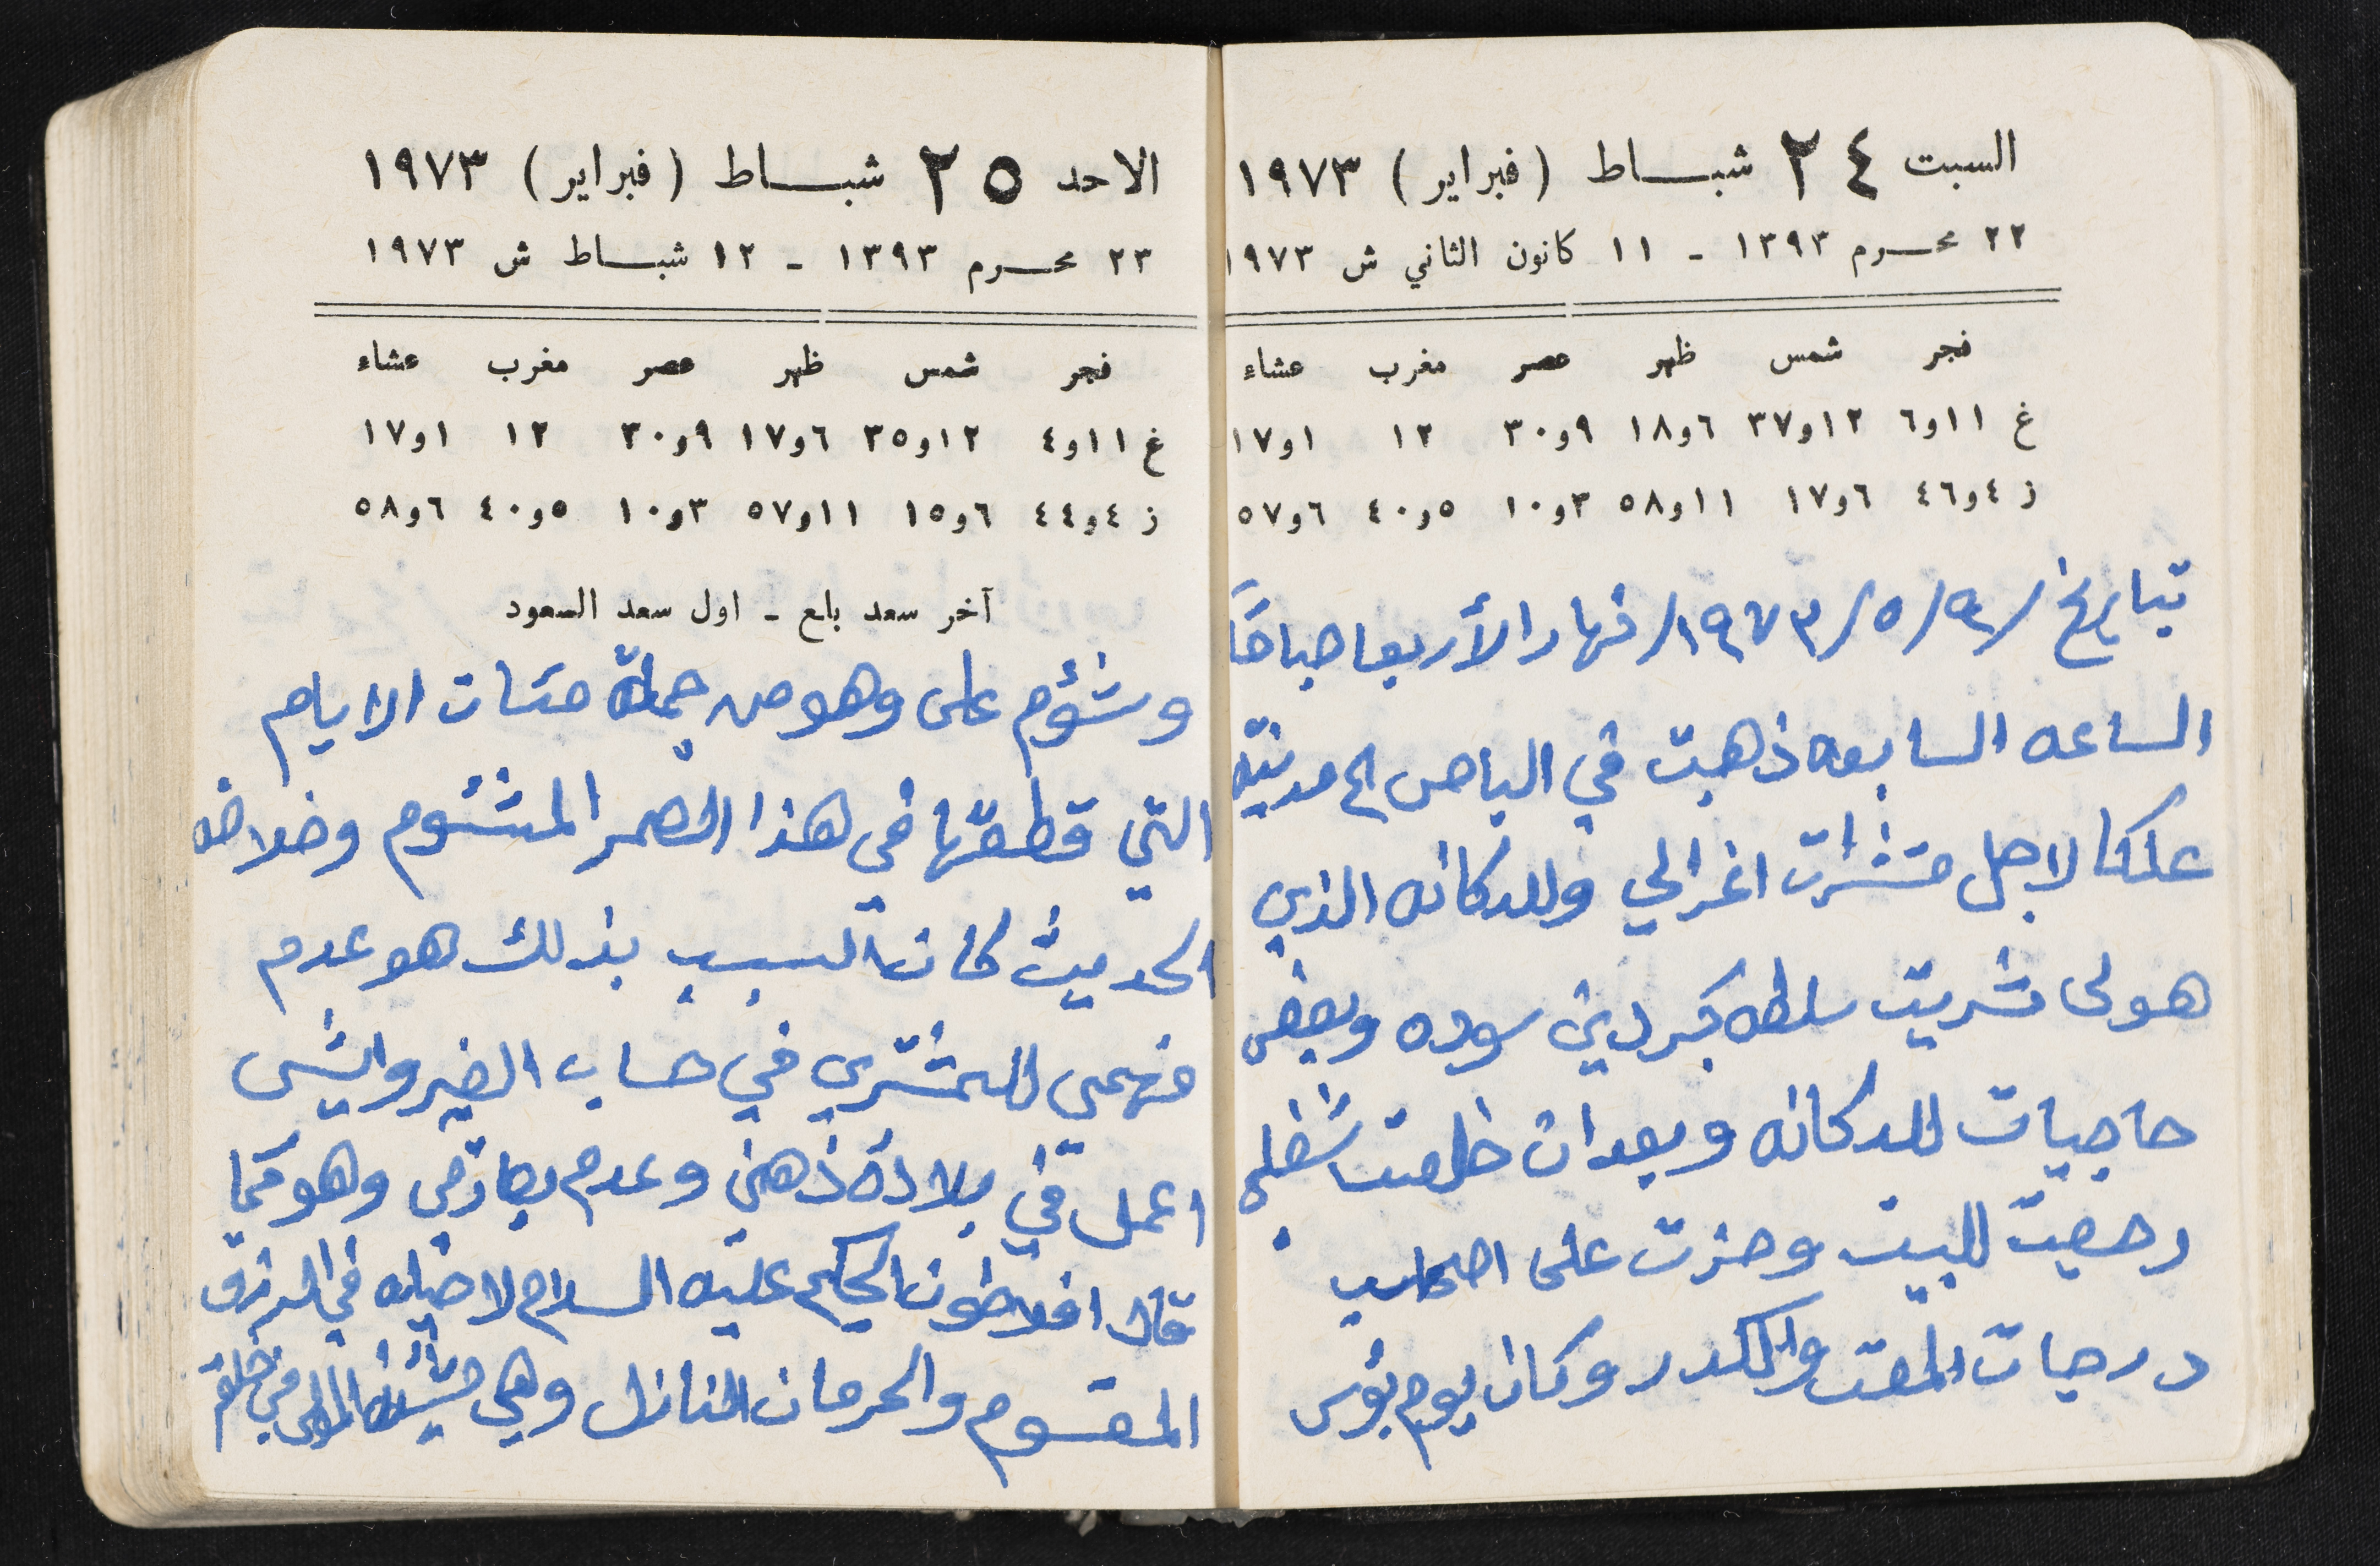 السبت ٢٤ شبـــاط (فبراير) ١٩٧٣
٢٢ محــرم ١٣٩٣ ـ ١١ كانون الثاني ش ١٩٧٣
فجر شمس ظهر عصر مغرب عشاء
غ ١١و٦ ١٢و٣٧ ٦و١٨ ٩و٣٠ ١٢ ١و١٧
ز ٤و٤٦ ٦و١٧ ١١و٥٨ ٣و١٠ ٥و٤٠ ٦و٥٧
بتاريخ /٩/٥/١٩٧٣/ نهار الأربعا صباحًا
الساعه السابعه ذهبت في الباص الى مدينة
عكا لاجل مشترات اغرالي وللدكانه الذي
هولى شريت سلطه كبردين سوده وبعض
حاجيات للدكانه وبعدان خلصت شغلي
رجعت للبيت وحزت على اصحاب
درجات المقت والكدر وكان يوم بؤس
الاحد ٢٥ شبـــاط (فبراير) ١٩٧٣
٢٣ محــرم ١٣٩٣ ـ ١٢ شبـــاط ش ١٩٧٣
فجر شمس ظهر عصر مغرب عشاء
غ ١١و٤ ١٢و٣٥ ٦و١٧ ٩و٣٠ ١٢ ١و١٧
ز ٤و٤٤ ٦و١٥ ١١و٥٧ ٣و١٠ ٥و٤٠ ٦و٥٨
آخر سعد بلع ـ اول سعد السعود
وشؤم على وهو من جملة مئات الايام
التي قطعتها في هذا العمر المشئوم وخلاصه
الحديث كان السبب بذلك هو عدم
فهمي للمشتري في حساب الغير وايش
اعمل في بلادة ذهني وعدم بصارتي وهو كما
قال افلاطون الحكيم عليه السلام لا حيله في الرزق
المقسوم والحرمان النازل وهي مشيئة المولى في خلقه